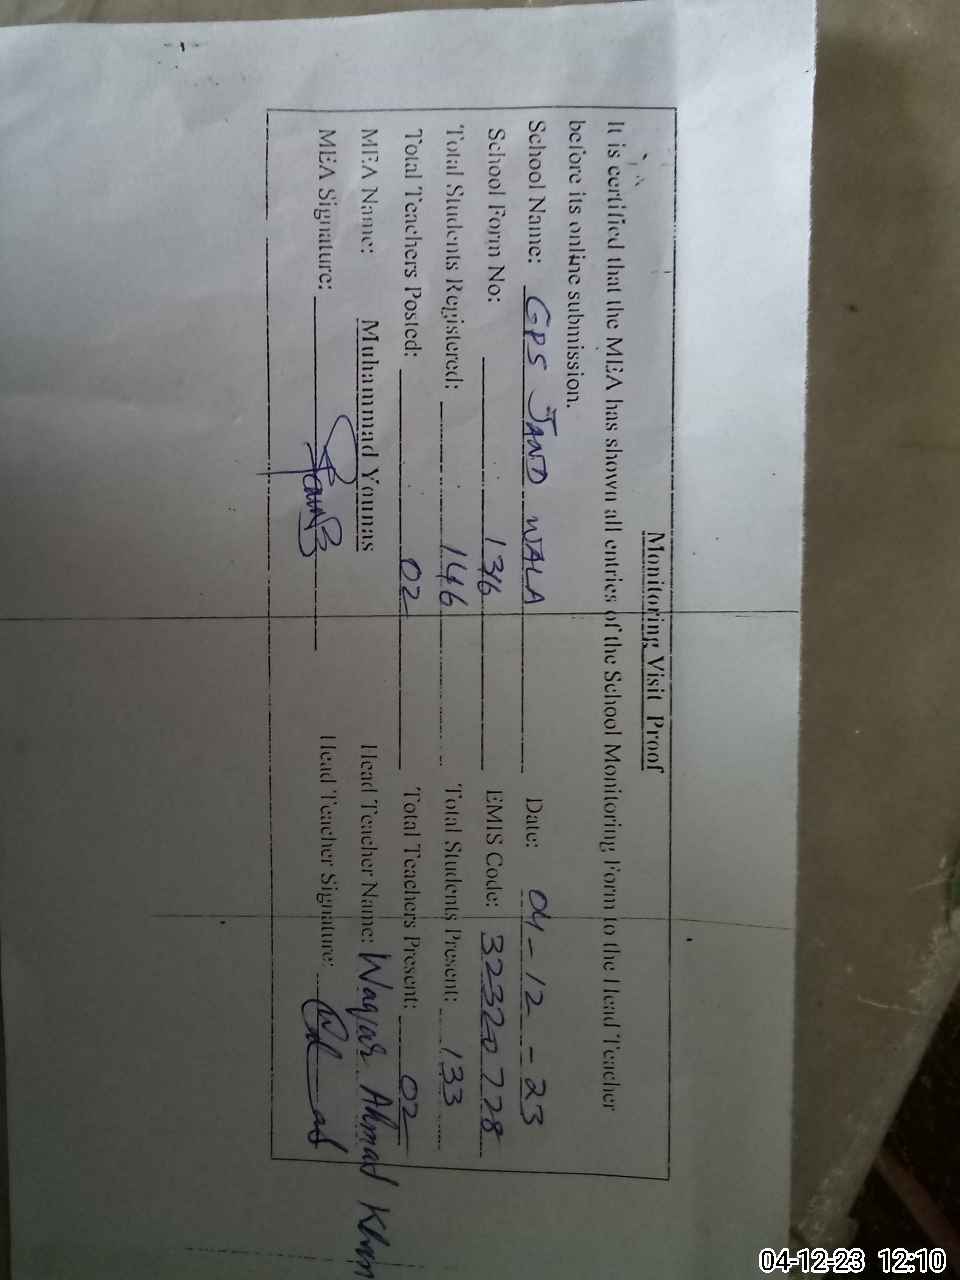 Monitoring Visit Proof
It is certified that the MEA has shown all entries of the School Monitoring Form to the Head Teacher
before its online submission.
School Name: GPS JAND WALA Date: 04-12-23
School Form No: 136 EMIS Code: 32320728
Total Students Registered: 146 Total Students Present: 133
Total Teachers Posted: 02 Total Teachers Present: 02
MEA Name: Muhammad Younas Head Teacher Name: Waqar Ahmad Khan
MEA Signature: Head Teacher Signature:
04-12-23 12:10